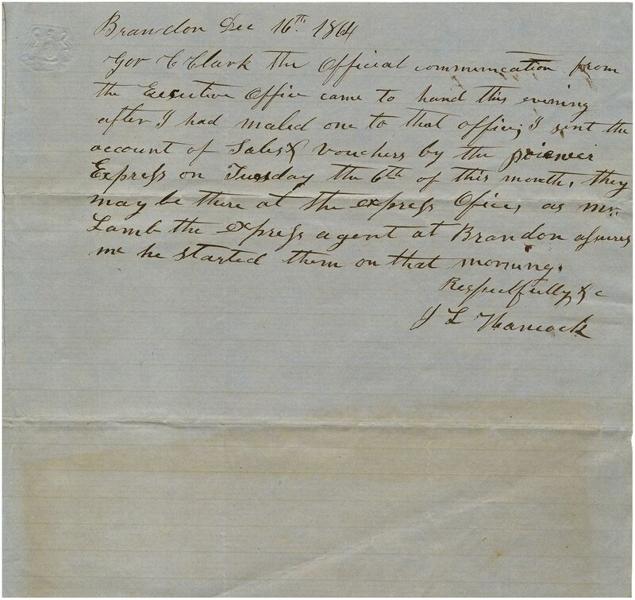 Brandon Dec 16th. 1864
Gov C Clark the Official communication from
the Executive Office came to hand this evening
after I had mailed one to that office, I sent the
account of Sales & vouchers by the
Express on Tuesday the 6th of this month, they
may be there at the express Ofice, as Mr.
Lamb the express agent at Brandon assures
me he started them on that morning.
Respectfully &c
J L Hancock